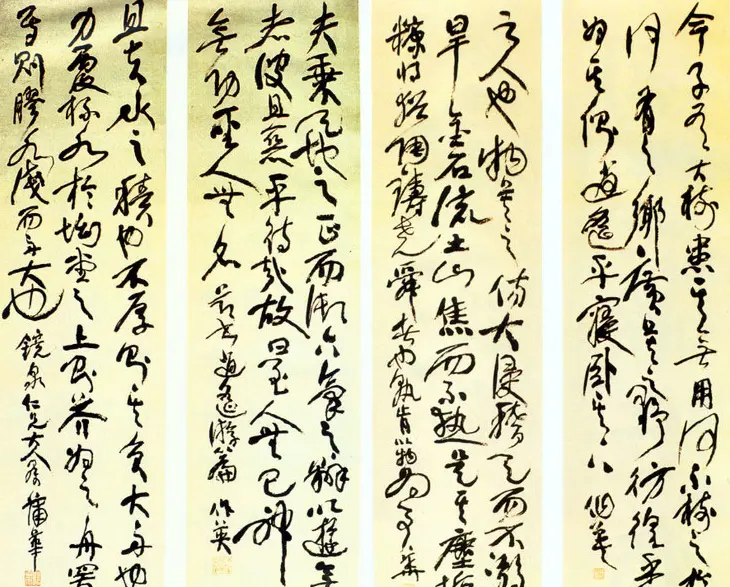 今子有大樹患其無用何不樹之於
何有之鄉廣莫之野彷徨乎
為其側逍遙乎寢臥其下
之人也物莫之傷大浸稽天而不溺
旱金石流土山焦而不熱是其塵垢
糠將猶陶鑄堯舜者也孰肯以物為事 華
夫乘天地之正而御六氣之辯以遊無
者彼且惡乎待哉故曰至人無己神
無功聖人無名 書逍遙游篇 作英
且夫水之積也不厚則其負大舟也
力覆杯水於坳堂之上則芥為之舟置
焉則膠水淺而舟大也 鏡泉仁兄大人屬 蒲華